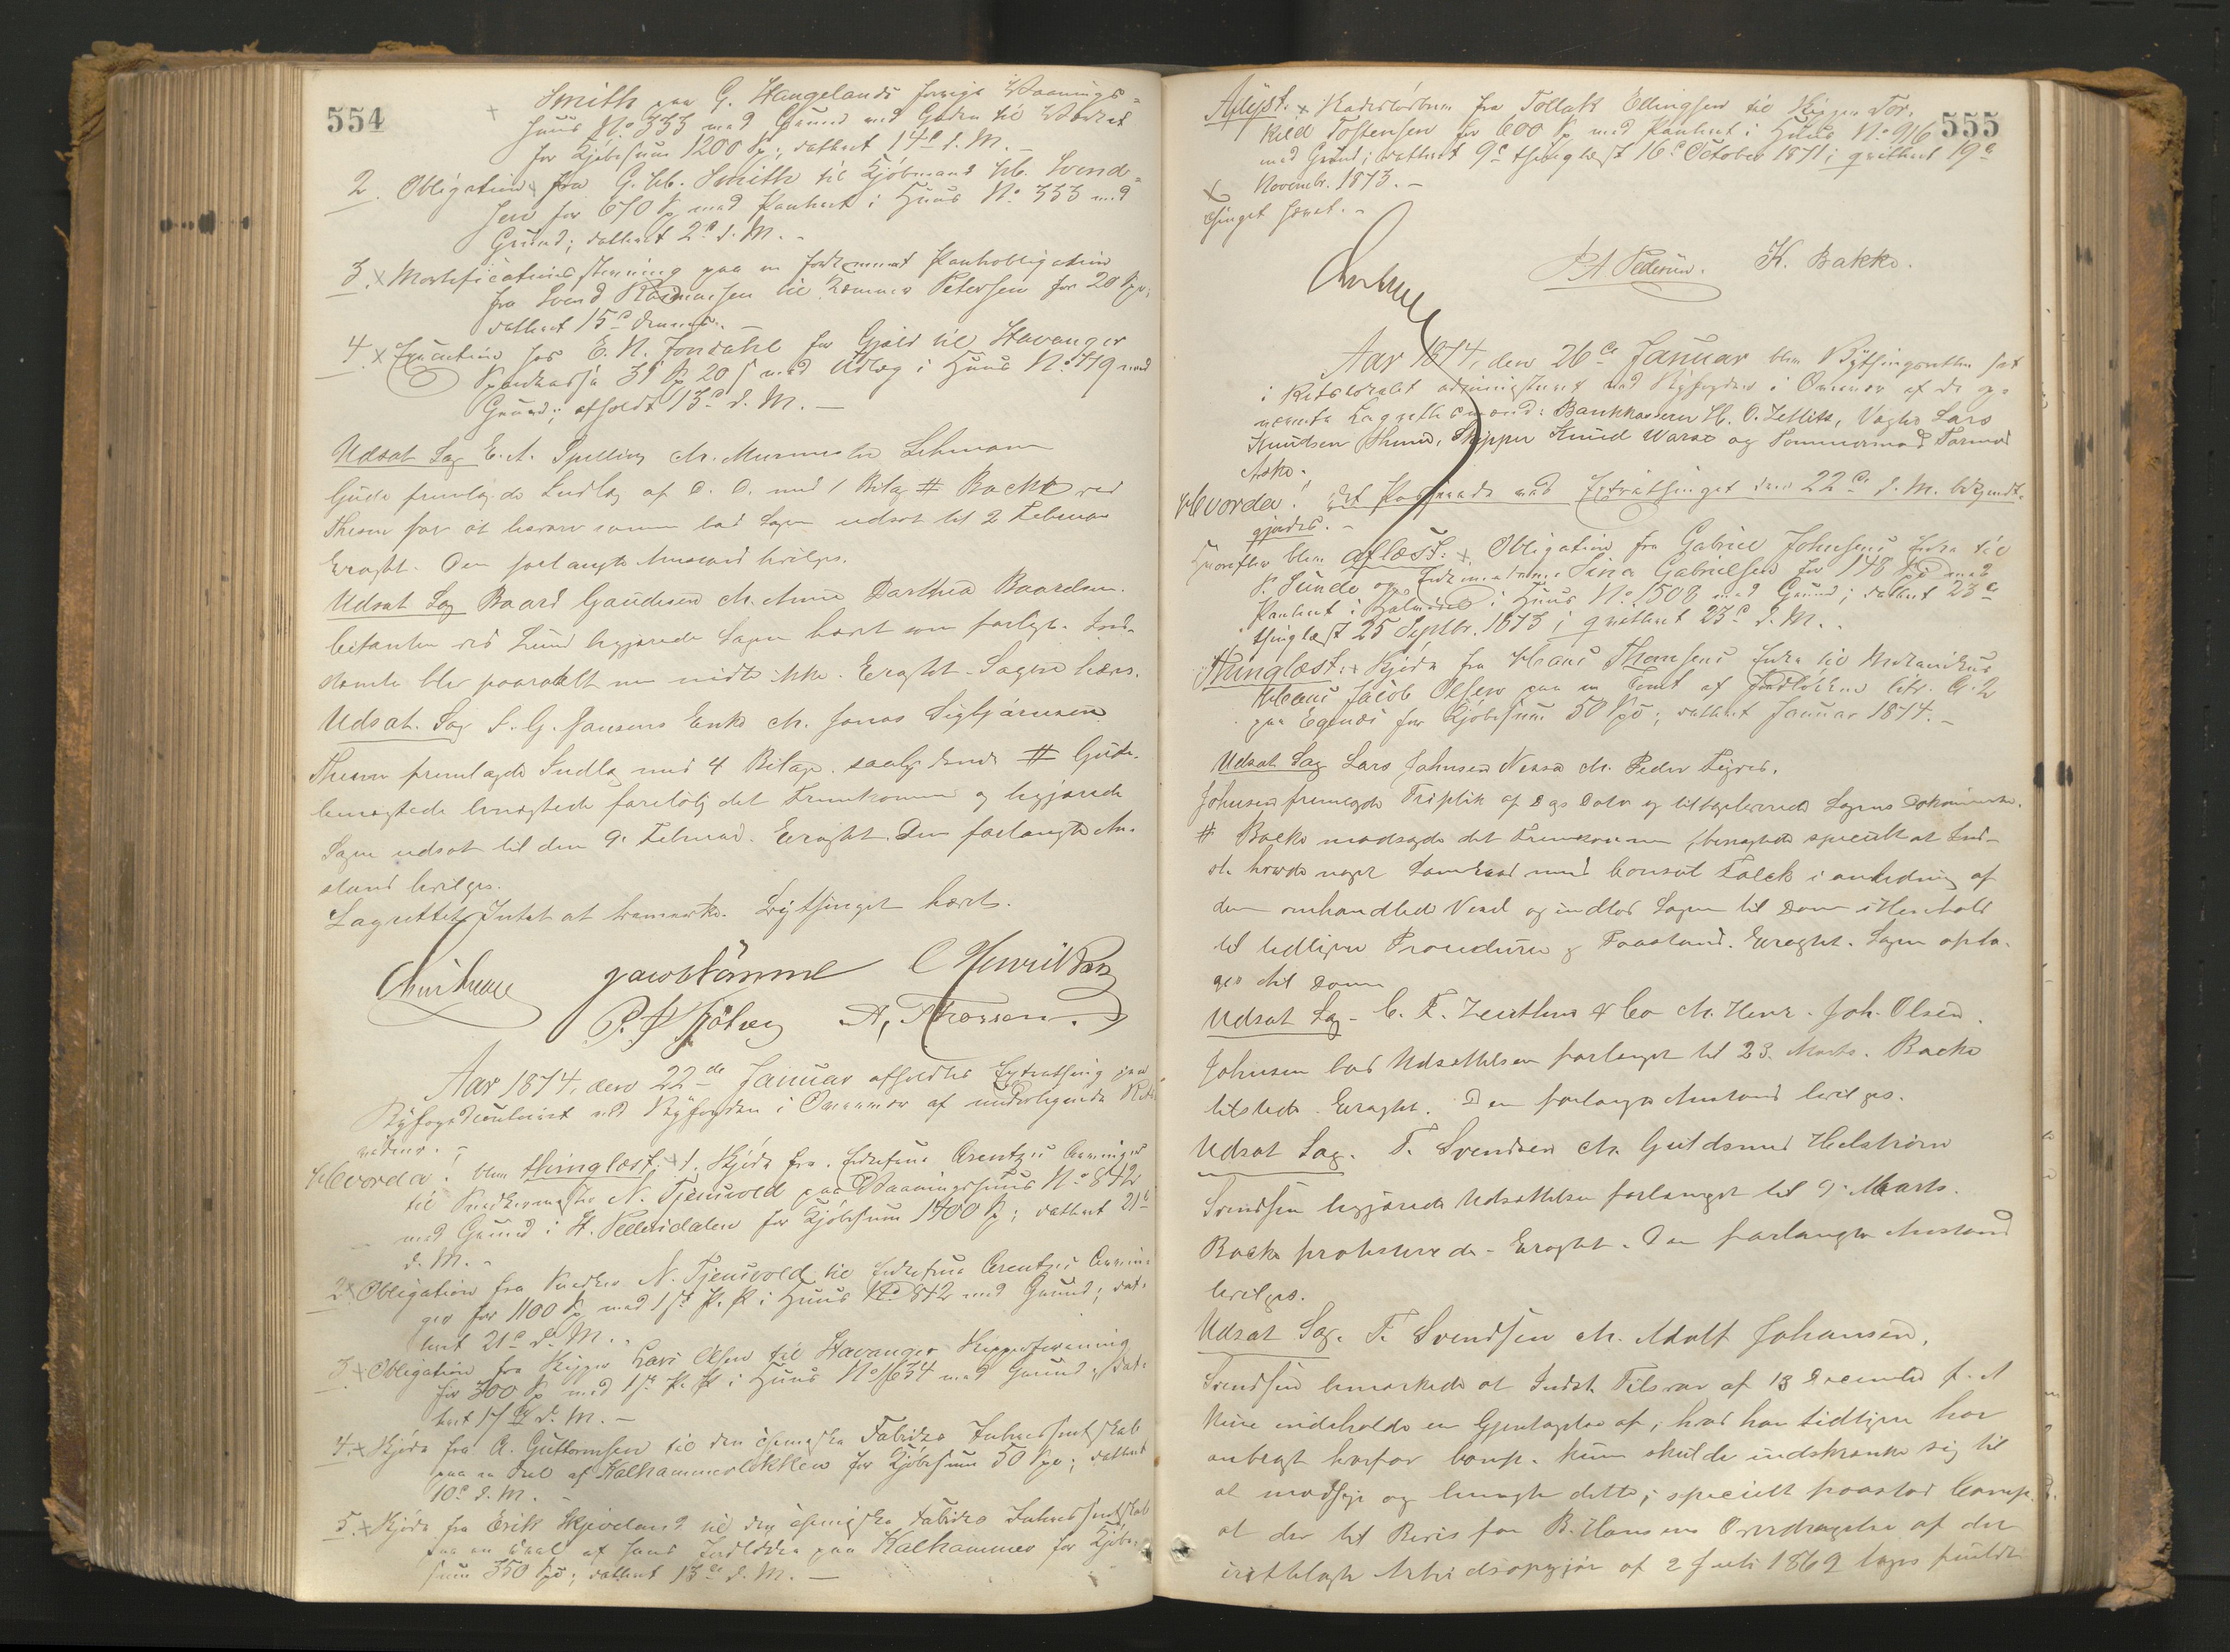 554
Smith paa G. Haugelands forrige Vaanings-
huus No 333 med Grund ved Gaden til Vandet
for Kjøbesum 1200 Sp; dateret 14de d. M. -
2. Obligation fra G. Chr. Smith til Kjøbmand Chr. Svend-
sen for 670 Sp med Panteret i Huus No 333 med
Grund; dateret 2de d. M. -
3. Mortificationsstevning paa en forkommet Panteobligation
fra Svend Rasmussen til Kemner Petersen for 20 Spd.
dateret 15de
4. Execution hos E. N. Jondahl for Gjæld til Stavanger
Sparekasse 31 Sp 20 s med Udlæg i Huus No 719 med
Grund; afholdt 13de d. M. -
Udsat Sag E. A. Spelling ctr. Murmester Lehmann
Gude fremlagde Indlæg af D. D. med 1 Bilag # Backe ved
Thesen for at besvare samme bad Sagen udsat til 2 Februar
Eragtet. Den forlangte Anstand bevilges.
Udsat Sag Baard Gaudesen ctr. Anne Darthea Baardsen.
Citanten ved Lund begjærede Sagen hævet som forligt. Ind-
stevnte blev paaraabt men mødte ikke. Eragtet. Sagen hæves.
Udsat Sag S. G. Jansens Enke ctr. Jonas Sigbjørnsen
Thesen fremlagde Indlæg med 4 Bilage. saalydende # Gude.
benægtede foreløbig det Fremkomne og begjærede
Sagen udsat til den 9. Februar. Eragtet. Den forlangte An-
stand bevilges.
Lagrettet Intet at bemærke. Bythinget hævet.
C Henriksen
A. Thorsen.
Aar 1874, den 22de Januar afholdtes Extrathing paa
Byfogedcontoiret ved Byfogden i Overvær af underskrevne Rets-
vidner. -
Hvorda! blev thinglæst; 1. Skjøde fra Enkefrue Arentzes Arvinger
til Snedkermester N. Tjensvold paa Vaaningshuus No 842
med Grund i St. Pedersdalen for Kjøbesum 1400 Sp; dateret 21de
d. M. -
2. Obligation fra Snedker N. Tjensvold til Enkefrue Arentzes Arvin-
ger for 1100 Sp med 1ste P. R i Huus No 842 med Grund; dat-
eret 21de d. M. -
3. Obligation fra Skipper Lars Olsen til Stavanger Skipperforening
for 300 Sp med 1ste P. R i Huus No 1634 med Grund; dat-
eret 17de d. M. -
4. Skjøde fra A. Guttormsen til den chemiske Fabriks Interessentskab
paa en Deel af Kalhammerløkken for Kjøbesum 50 Spd; dateret
10de d. M. -
5. Skjøde fra Erik Skjeveland til den chemiske Fabriks Interessentskab
paa en Deel af hans Jordløkke paa Kalhammer for Kjøbe-
sum 350 Spd; dateret 13de d. M. -
555
Aflyst. Kadesløsbrev fra Tollak Ellingsen til Skipper Tor-
kild Tostensen for 600 Sp med Panteret i Huus No 916
med Grund; dateret 9de thinglæst 16de October 1871; qvitteret 19de
Novembr. 1873. -
Thinget hævet. -
P A Pedersen. K. Bakke.
Aar 1874, den 26de Januar blev Bythingsretten sat
i Retslokalet administreret ved Byfogden i Overvær af de op-
nævnte Lagrettesmænd: Bankkasserer H. O. Zetlitz, Vægter Lars
Knudsen Skipper Knud Waræ og Tommermand Tormod
Aske.
Hvorda! Det Passerede ved Extrathinget den 22de d. M. bekjendt-
gjordes. -
Hvorefter blev Aflæst: Obligation fra Gabriel Johnsens Enke til
P. Sunde og Sina Gabrielsen for 148 Sp med
Panteret i i Huus No 1508 med Grund; dateret 23de
thinglæst 25 Septbr. 1873; qvitteret 23de d. M. -
Thinglæst: Skjøde fra Hans Thomsens Enke til Mekanikus
Hans Jacob Olsen paa en Tomt af Jordløkken litr. A. 2
paa Egenæs for Kjøbesum 50 Spd; dateret Januar 1874. -
Udsat Sag Lars Johnsen Næssø ctr. Peder
Johnsen fremlagde Triplik af Dags Dato og tilbageleverede Sagens Dokumenter.
# Backe modsagde det Fremkomne, benægtede specielt at Ind-
st. havde noget Samkvæm med Consul Falck i anledning af
den omhandlede Vexel og indlod Sagen til Dom i Henhold
til tidligere Procedure og Paastand. Eragtet. Sagen opta-
ges til Dom
Udsat Sag - C. F. Zeuthen & Co ctr. Henr. Joh. Olsen.
Johnsen bad Udsættelsen forlænget til 23. Marts. Backe
tilstede. Eragtet. Den forlangte Anstand bevilges.
Udsat Sag. T. Svendsen ctr. Guldsmed Helstrøm
Svendsen begjærede Udsættelsen forlænget til 9. Marts.
Backe protesterede - Eragtet. Den forlangte Anstand
bevilges.
Udsat Sag. T. Svendsen ctr. Adolf Johansen.
Svendsen bemærkede at Indst. Tilsvar af 13 December f. A
kun indeholdt en Gjentagelse af, hvad han tidligere har
anbragt hvorfor Comp. kun skulde indskrænke sig til
at modsige og benægte dette; specielt paastod Comp.
at der til Bevis for B. Hansens Overdragelse af det
irettelagte Arbeidsopgjør af 2 Juli 1869